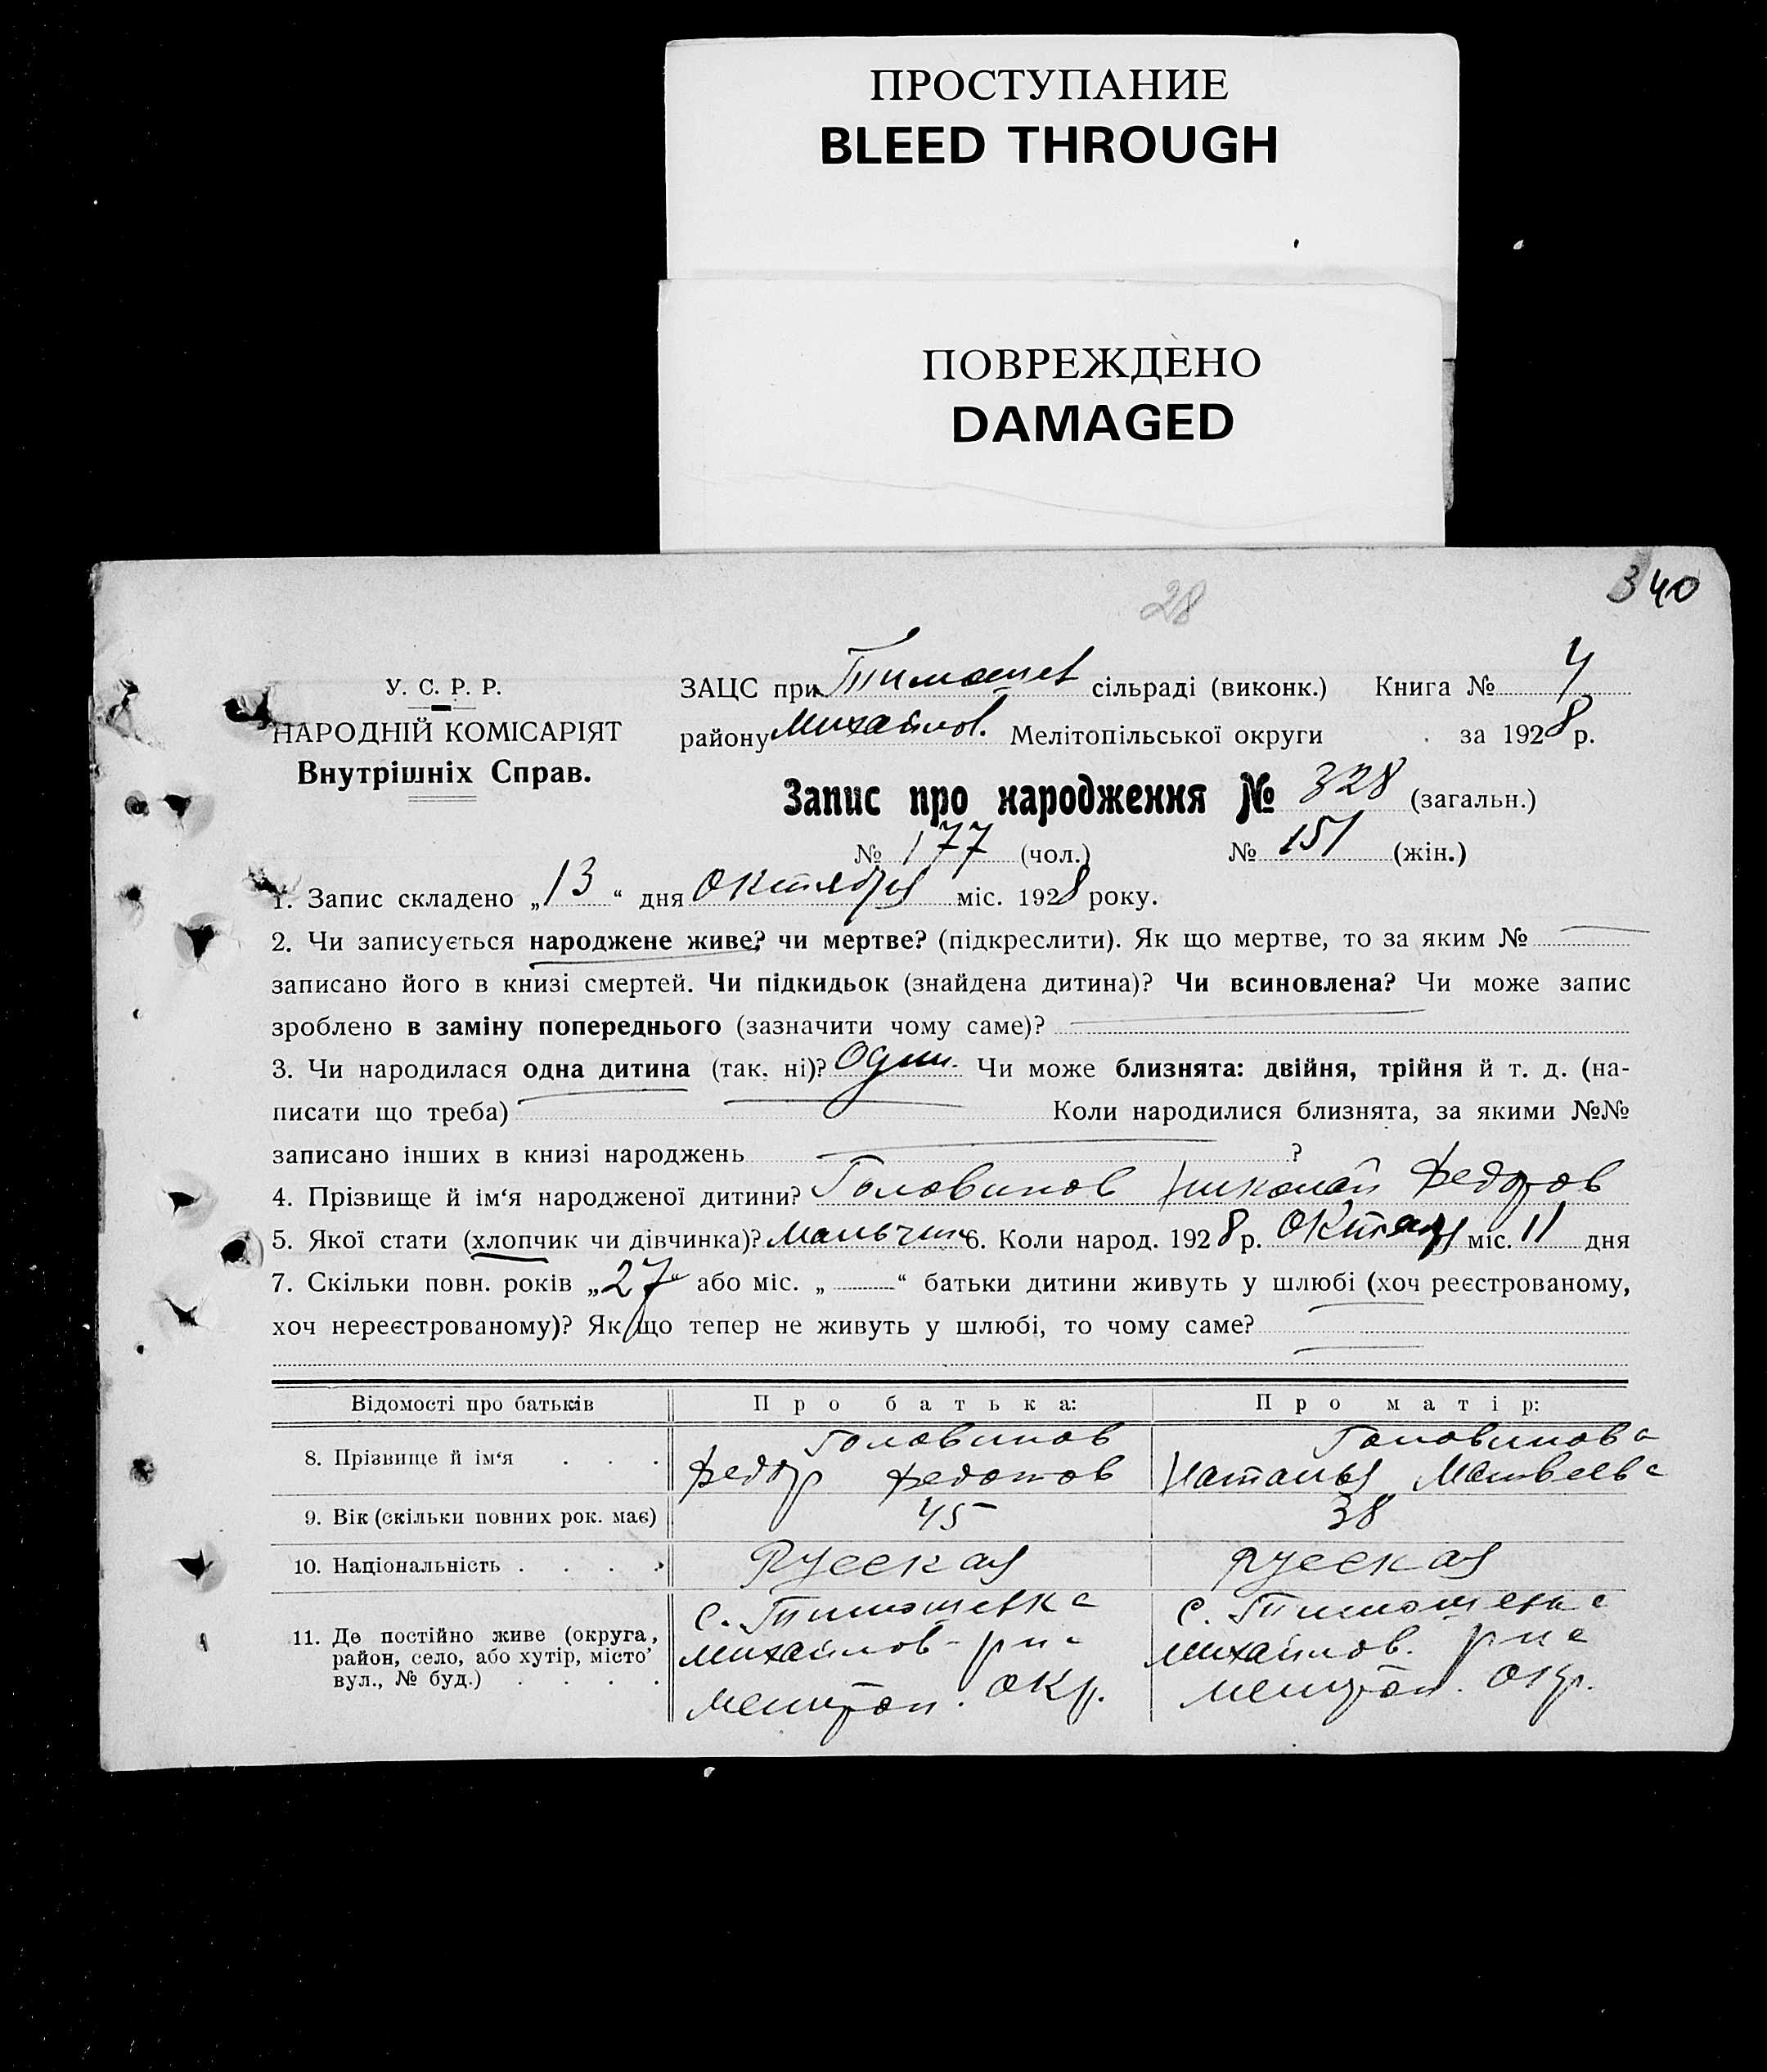 ПРОСТУПАНИЕ
BLEED THROUGH
ПОВРЕЖДЕНО
DAMAGED
340
28
У. С. Р. Р.
НАРОДНІЙ КОМІСАРІЯТ
Внутрішніх Справ.
ЗАЦС при Тимошев сільраді (виконк.) Книга № 4
району Михайлов. Мелітопільської округи за 1928 р.
Запис про народження № 328 (загальн.)
№ 177 (чол.) № 151 (жін.)
1. Запис складено „13“ дня Октября міс. 1928 року.
2. Чи записується народжене живе? чи мертве? (підкреслити). Як що мертве, то за яким №
записано його в книзі смертей. Чи підкидьок (знайдена дитина)? Чи всиновлена? Чи може запис
зроблено в заміну попереднього (зазначити чому саме)?
3. Чи народилася одна дитина (так. ні)? Один. Чи може близнята: двійня, трійня й т. д. (на-
писати що треба) Коли народилися близнята, за якими №№
записано інших в книзі народжень ?
4. Прізвище й ім‘я народженої дитини? Головинов Николай Федоров
5. Якої стати (хлопчик чи дівчинка)? Мальчик 6. Коли народ. 1928 р. Октября міс. 11 дня
7. Скільки повн. років „27“ або міс. „ “ батьки дитини живуть у шлюбі (хоч реєстрованому,
хоч нереєстрованому)? Як що тепер не живуть у шлюбі, то чому саме?
Відомості про батьків Про батька: Про матір:
8. Прізвище й ім‘я . . . Головинов Федор Федотов Головинова Наталья Матвеева
9. Вік (скільки повних рок. має) 45 38
10. Національність . . . . Русская Русская
11. Де постійно живе (округа, район, село, або хутір, місто вул., № буд.) . . . .
с. Тимошевка с. Тимошевка
Михайлов. р-на Михайлов. р-на
Мелитоп. окр. Мелитоп. окр.